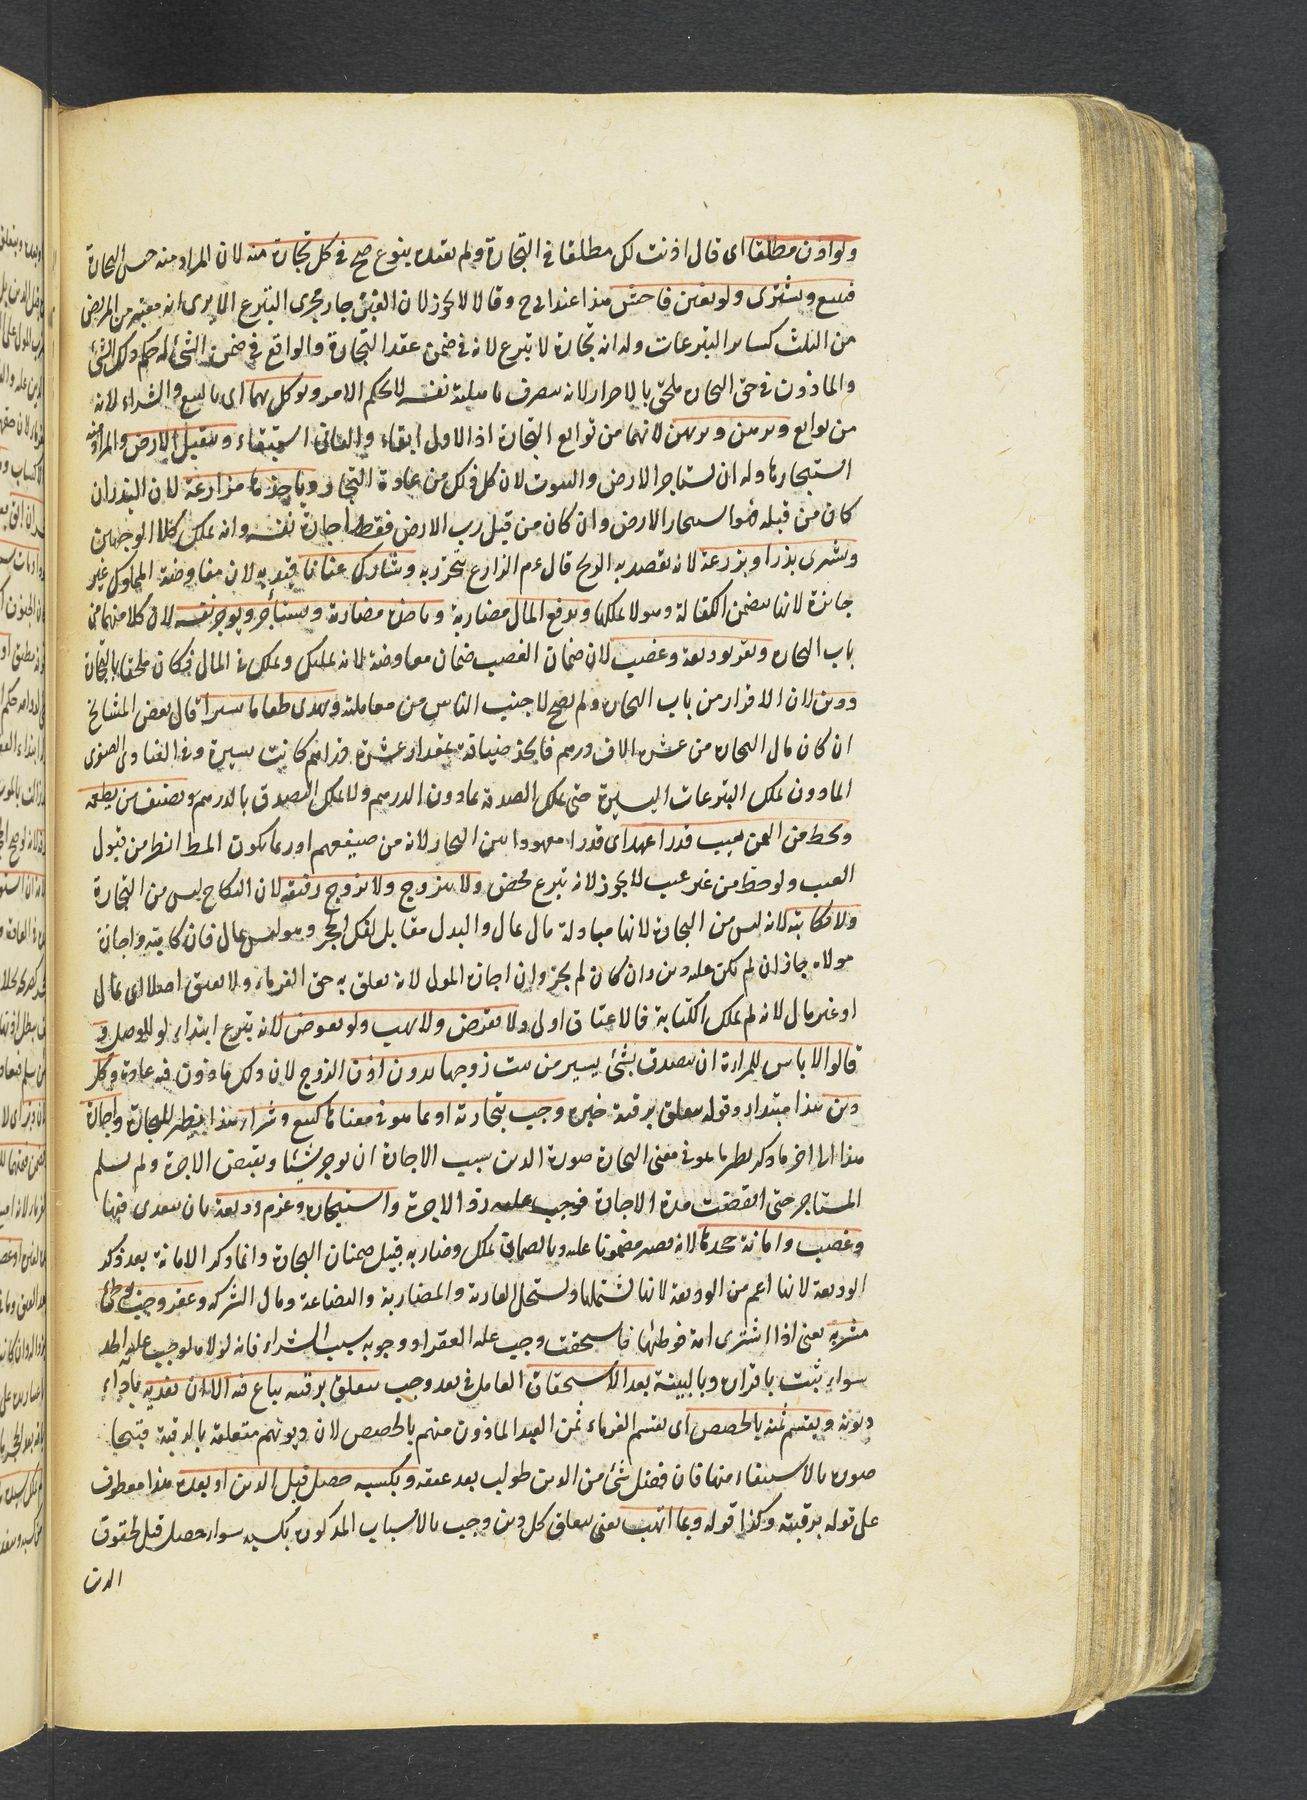 ولو اذن مطلقا اى قال اذنت لك مطلقا فى التجارة ولم يقيده بنوع صح فى كل تجارة منه لان المراد منه جنس التجارة
فيبيع ويشترى ولو بغبن فاحش هذا عند ابى ح وقالا لا يجوز لان الغبن جار مجرى التبرع الا يرى انه معتبر من المريض
من الثلث كسائر التبرعات وله انه تجارة لا تبرع لانه فى ضمن عقد التجارة والواقع فى ضمن الشئ له حكم ذلك الشئ
والماذون فى حق التجارة ملحق بالاحرار لانه يتصرف باهلية نفسه لا بحكم الامر ويوكل بهما اى بالبيع والشراء لانه
من توابع ويرهن ويرتهن لانهما من توابع التجارة اذ الاول ايفاء والثانى استيفاء ويتقبل الارض والمراد منه
استيجارها وله ان يستاجر الارض والبيوت لان كل ذلك من عادة التجار وياخذها مزارعة لان البذر ان
كان من قبله فهو استيجار الارض وان كان من قبل رب الارض فقد اجارة نفسه وانه يملك كلا الوجهين
ويشترى بذرا ويزرعه لانه يقصد به الربح قال عم الزارع يتجر ربه ويشارك عنانا قيد به لان مفاوضة المملوك غير
جائزة لانها تتضمن الكفالة وهو لا يملكها ويدفع المال مضاربة وياخذه مضاربة ويستأجر ويوجر نفسه لان كلا منهما من
باب التجارة ويقر بوديعة وغصب لان ضمان الغصب ضمان معاوضة لانه تمليك وتملك فى المال فكان ملحقا بالتجارة
ودين لان الاقرار من باب التجارة ولو لم يصح لاجتنب الناس من معاملته ويهدى طعاما يسيرا قال بعض المشايخ
ان كان مال التجارة من عشرة الاف درهم فاتخذ ضيافة بمقدار عشرة دراهم كانت يسيرة وفى الفتاوى الصغرى
الماذون يملك التبرعات اليسيرة حتى يملك الصدقة بما دون الدرهم ولا يملك التصدق بالدرهم ويضيف من يطعمه
ويحط من الثمن بعيب قدرا عهد اى قدرا معهودا بين التجار لانه من صنيعهم وربما يكون الحط انظر من قبول
العيب ولو حط من غير عيب لا يجوز لانه تبرع محض ولا يتزوج ولا يزوج رقيقه لان النكاح ليس من التجارة
ولا مكاتبة لانه ليس من التجارة لانها مبادلة مال بمال والبدل مقابل بفك الحجر وهو ليس بمال فان كاتبه واجازه
مولاه جاز ان لم يكن عليه دين وان كان لم يجز وان اجازه المولى لانه تعلق به حق الغرماء ولا يعتق اصلا اى بمال
او غير مال لانه لم يملك الكتابة فالاعتاق اولى ولا يقرض ولا يهب ولو بعوض لانه تبرع ابتداء
قالوا لا باس للمراءة ان تتصدق بشئ يسير من بيت زوجها بدون اذن الزوج لان ذلك ماذون فيه عادة وكل
دين هذا مبتداء وقوله يتعلق برقبته خبره وجب بتجارة او بما هو فى معناها كبيع وشراء هذا نظير للتجارة واجارة
هذا الى اخر ما ذكر نظير ما هو فى معنى التجارة صورة الدين بسبب الاجارة ان يوجر شيئا ويقبض الاجرة ولم يسلم
المستاجر حتى انقضت مدة الاجارة فوجب عليه رد الاجرة واستيجار وغرم وديعة بان يتعدى فيها
وغصب وامانة جحدها لانه يصير مضمونا عليه وبالضمان يملك وضاربه قبيل ضمان التجارة وانما ذكر الامانة بعد ذكر
الوديعة لانها اعم من الوديعة لانها تشملها وتشمل العارية والمضاربة والبضاعة ومال الشركة وعقر وجب بوطئ
مشريه يعنى اذا اشترى امة فوطئها فاستحقت وجب عليه العقر او وجوبه بسبب الشراء فانه لولاه لوجب عليه الحد
سواء ثبت باقراره وبالبينة بعد الاستحقاق العامل فى بعد وجب يتعلق برقبته يباع فيه الا ان يفديه باداء
ديونه ويقسم ثمنه بالحصص اى يقسم الغرماء ثمن العبد الماذون منهم بالحصص لان ديونهم متعلقة بالرقبة
بالاستيفاء منها فان فضل شئ من الدين طولب بعد عتقه وبكسبه حصل قبل الدين او بعده هذا معطوف
على قوله برقبته وكذا قوله وبما اتهب يعنى يتعلق كل دين وجب بالاسباب المذكورة بكسبه سواء حصل قبل لحقوق
الدين